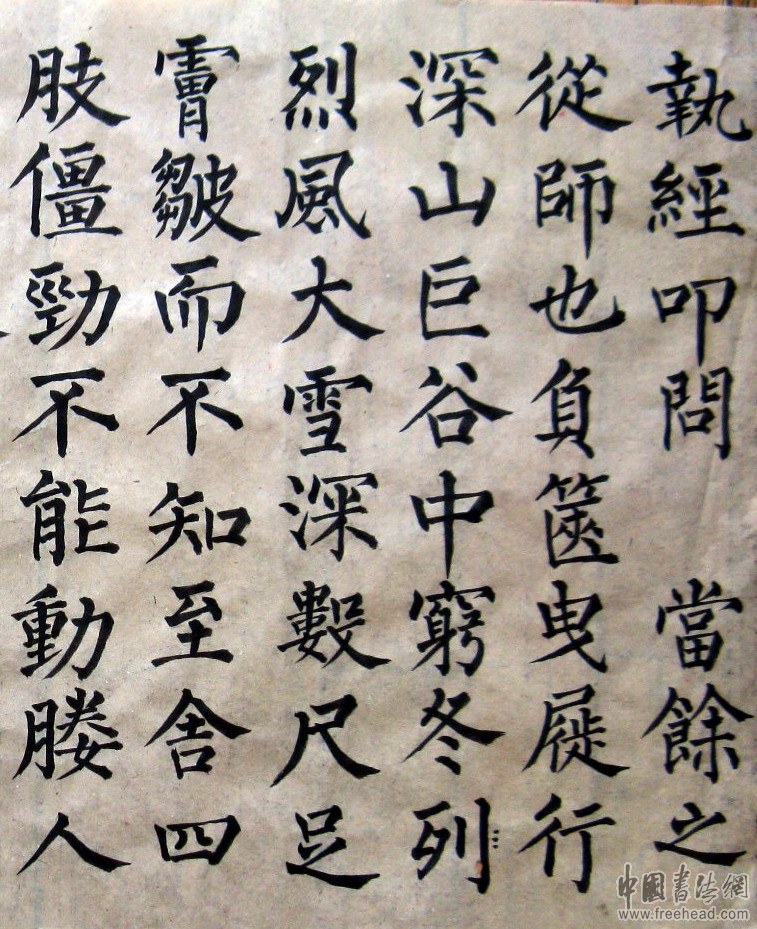 執經叩問 當餘之
從師也負篋曳屣行
深山巨谷中窮冬列
烈風大雪深數尺足
皺而不知至舍四
肢僵勁不能動媵人
中国書法網
www.freehead.com